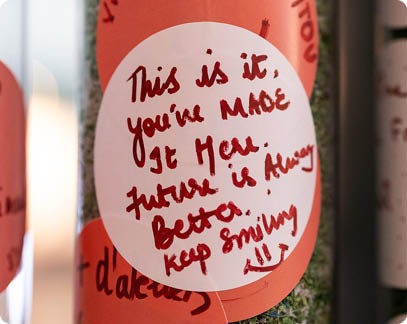 This is it,
you've MADE
It Here.
Future is Alway
Better.
Keep Smiling
d'ateliers